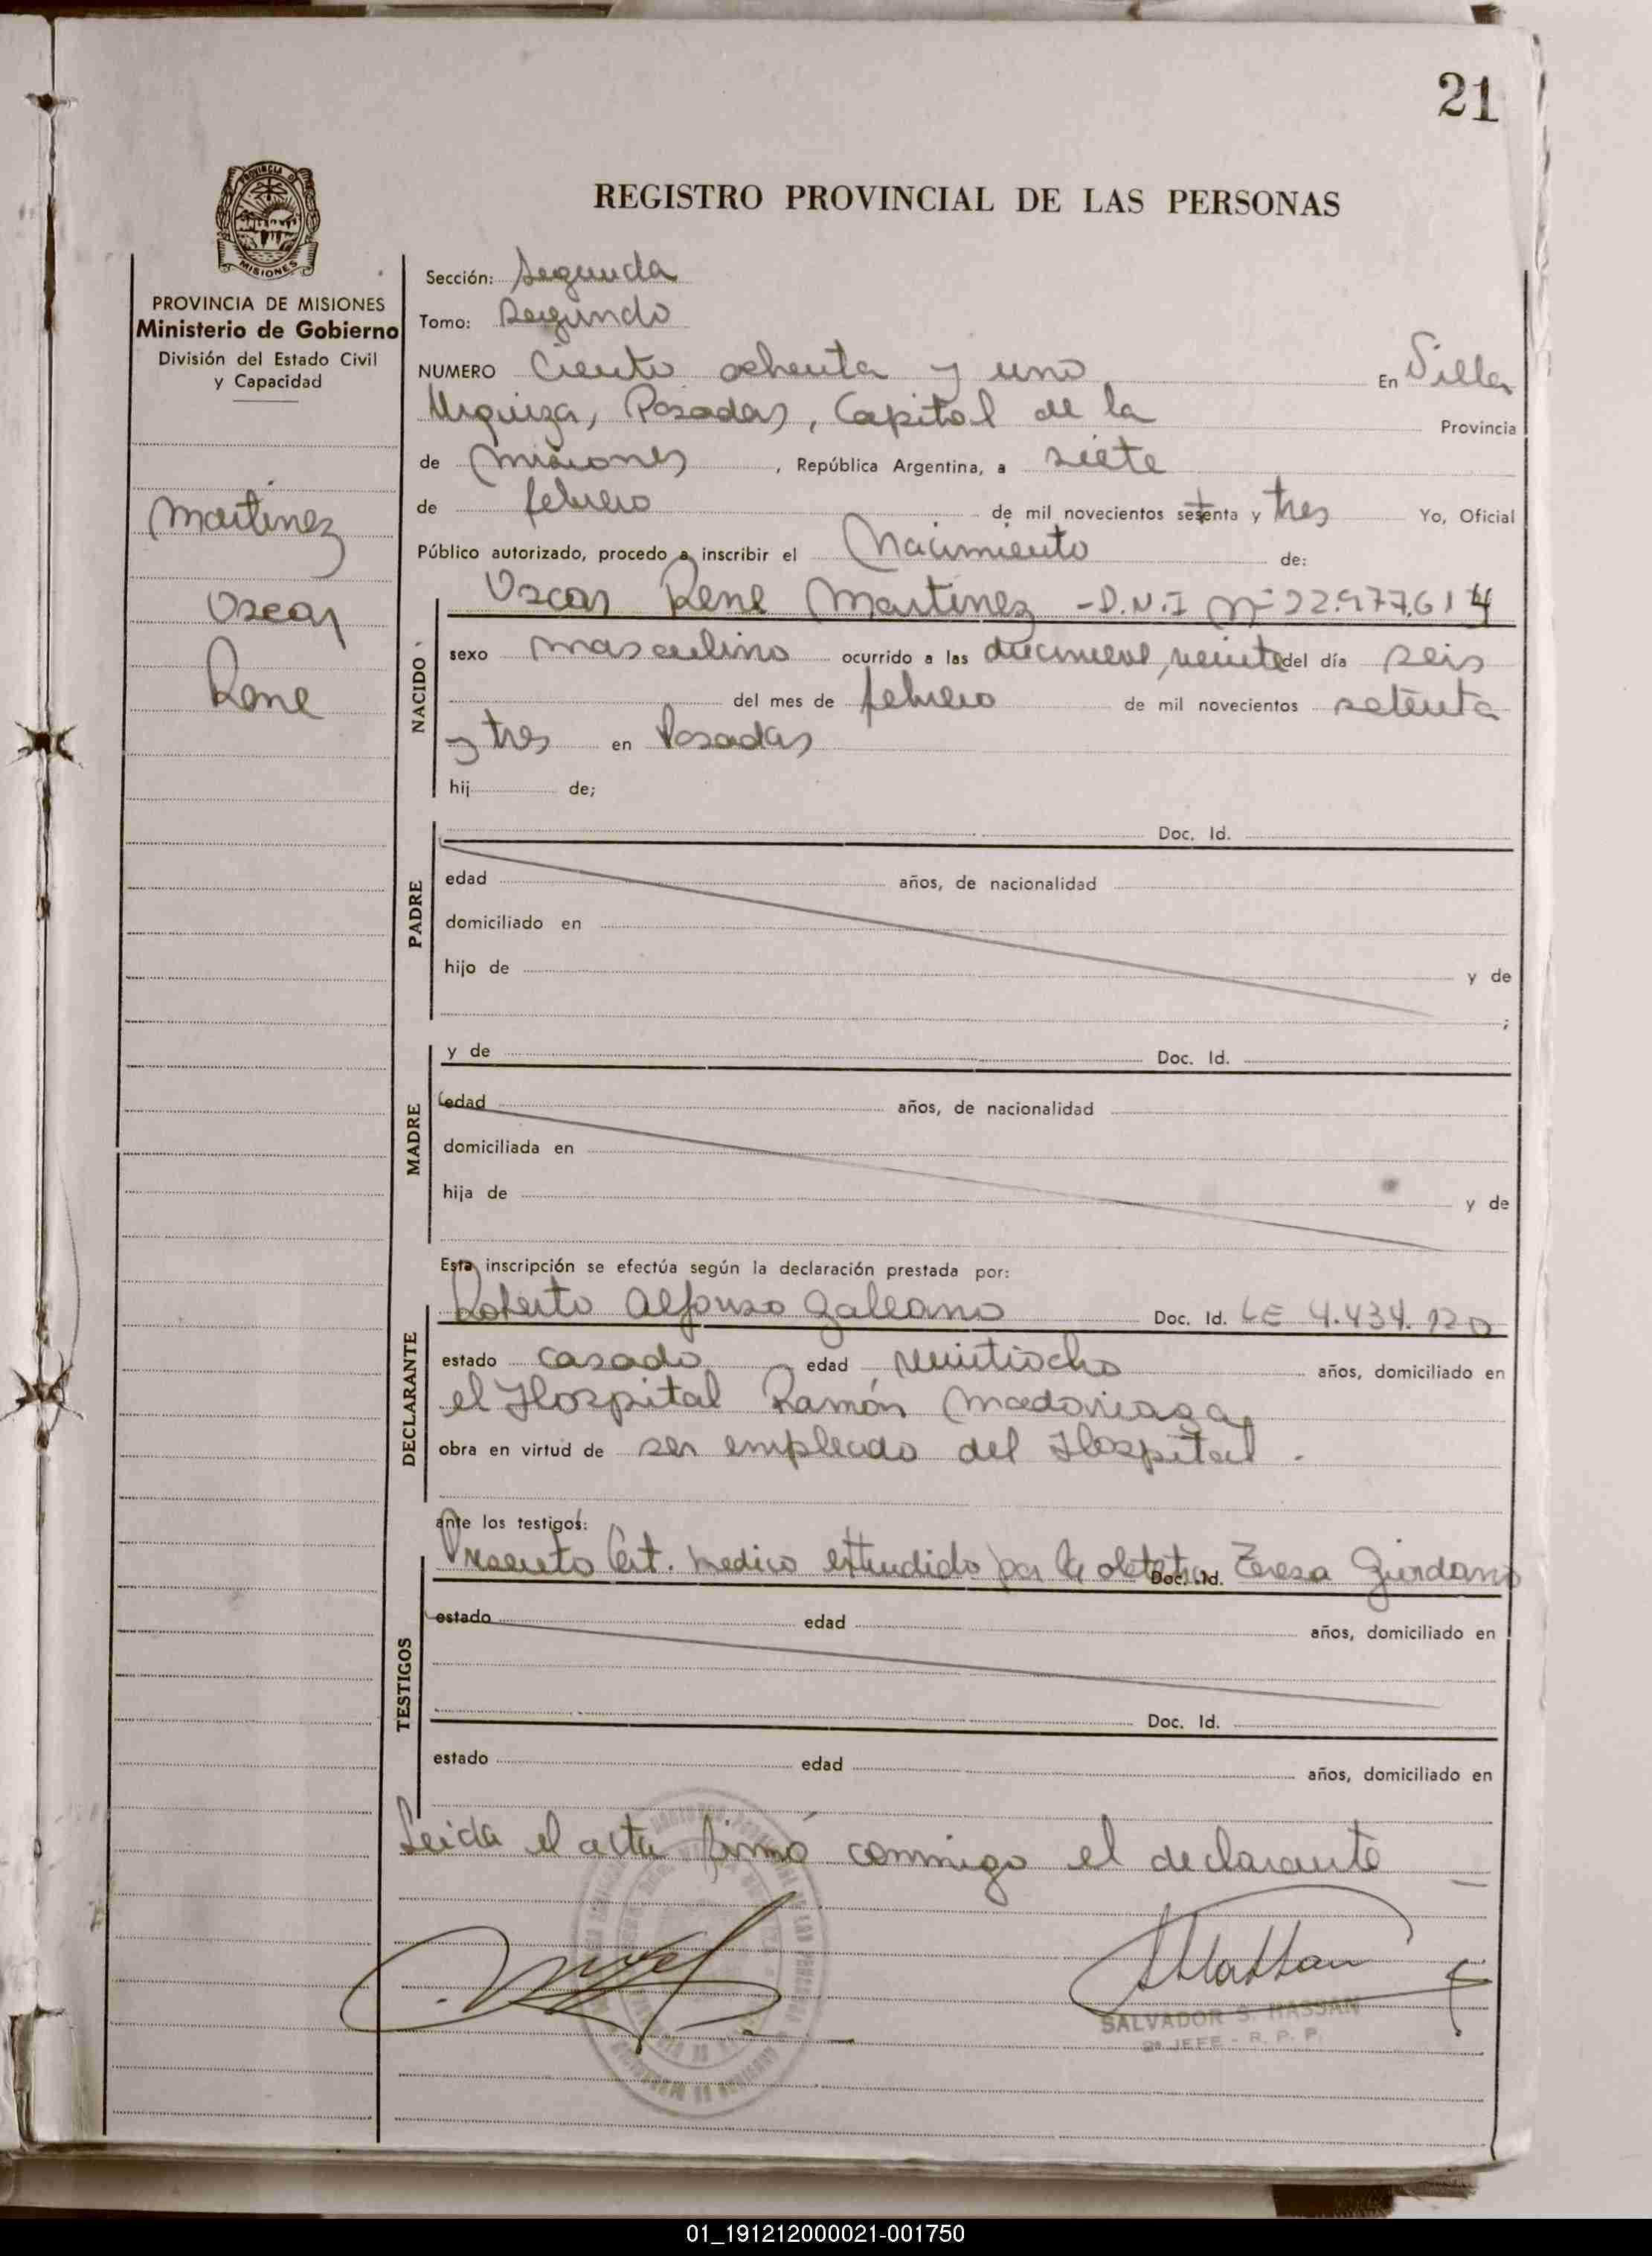 21
PROVINCIA DE
MISIONES
REGISTRO PROVINCIAL DE LAS PERSONAS
PROVINCIA DE MISIONES
Ministerio de Gobierno
División del Estado Civil
y Capacidad
Martinez
Oscar
Rene
Sección: Segunda
Tomo: Segundo
NUMERO Ciento ochenta y uno En Villa
Urquiza, Posadas, Capital de la Provincia
de Misiones, República Argentina, a siete
de febrero de mil novecientos setenta y tres Yo, Oficial
Público autorizado, procedo a inscribir el Nacimiento de:
NACIDO
Oscar Rene Martinez - D.N.I Nº 22.977.614
sexo masculino ocurrido a las diecinueve, veinte del día seis
del mes de febrero de mil novecientos setenta
y tres en Posadas
hij de;
PADRE
Doc. Id.
edad años, de nacionalidad
domiciliado en
hijo de y de
;
MADRE
y de Doc. Id.
edad años, de nacionalidad
domiciliada en
hija de y de
Esta inscripción se efectúa según la declaración prestada por:
DECLARANTE
Roberto Alfonso Galeano Doc. Id. LE 4.434.120
estado casado edad veintiocho años, domiciliado en
el Hospital Ramón Madariaga
obra en virtud de ser empleado del Hospital.
ante los testigos:
TESTIGOS
Presento Cert. medico extendido por la obstetra Doc. Id. Teresa Giordano
estado edad años, domiciliado en
Doc. Id.
estado edad años, domiciliado en
Leida el acta firmó conmigo el declarante
SALVADOR S. HASSAN
2º JEFE - R. P. P.
01_191212000021-001750